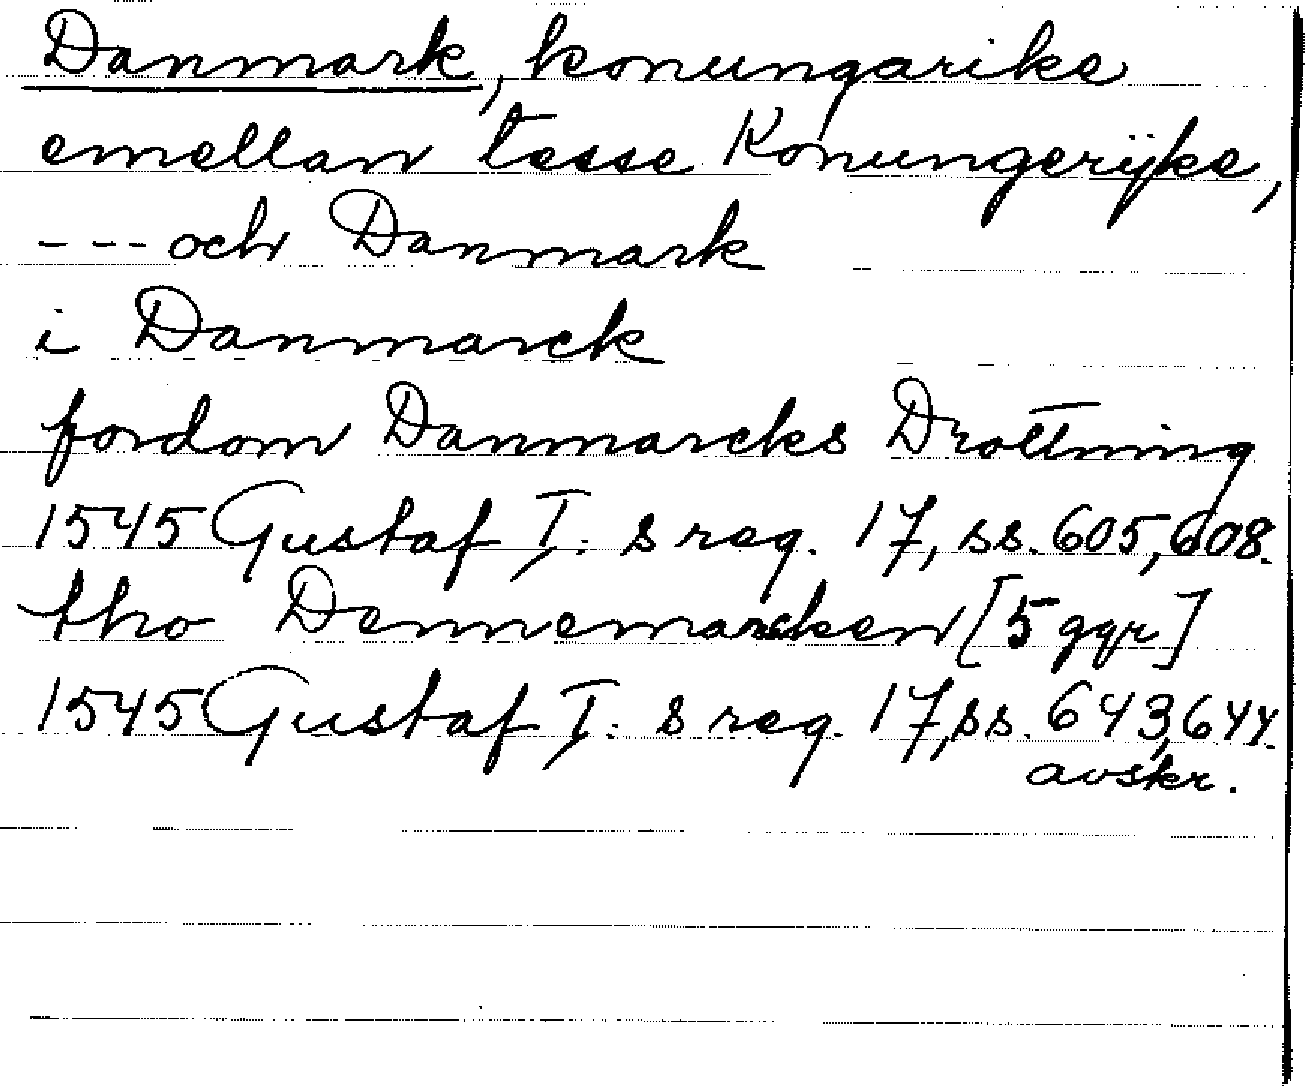 Danmark, konungarike
emellan tesse Konungerijke,
--- och Danmark
i Danmarck
fordom Danmarcks Drottning
1545 Gustaf I: s reg. 17, ss. 605, 608.
tho Dennemarcken [5 ggr]
1545 Gustaf I: s reg. 17, ss. 643, 644.
avskr.